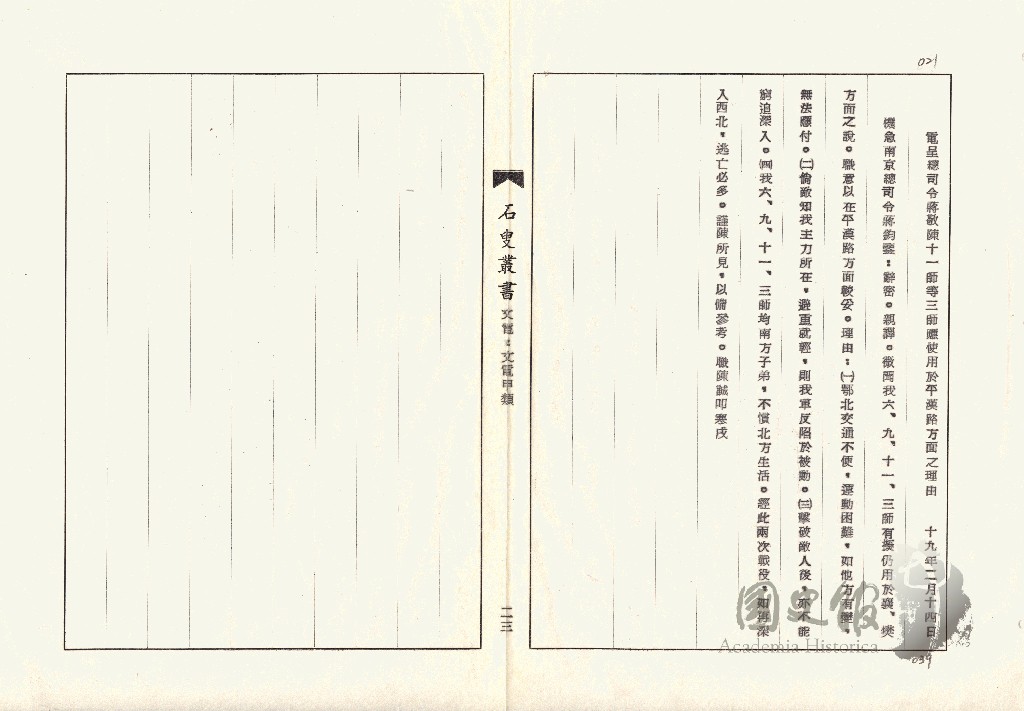 021
電呈總司令蔣敬陳十一師等三師應使用於平漢路方面之理由　十九年二月十四日
機急南京總司令蔣鈞鑒：辭密。親譯。微聞我六、九、十一、三師有擬仍用於襄、樊
方面之說。職意以在平漢路方面較妥。理由：㈠鄂北交通不便，運動困難，如他方有變，
無法應付。㈡倘敵知我主力所在，避重就輕，則我軍反陷於被動。㈢擊破敵人後，亦不能
窮追深入。㈣我六、九、十一、三師均南方子弟，不慣北方生活。經此兩次戰役，如再深
入西北，逃亡必多。謹陳所見，以備參考。職陳誠叩寒戌
039
石叟叢書 文電：文電甲類
二三
國史館
Academia Historica